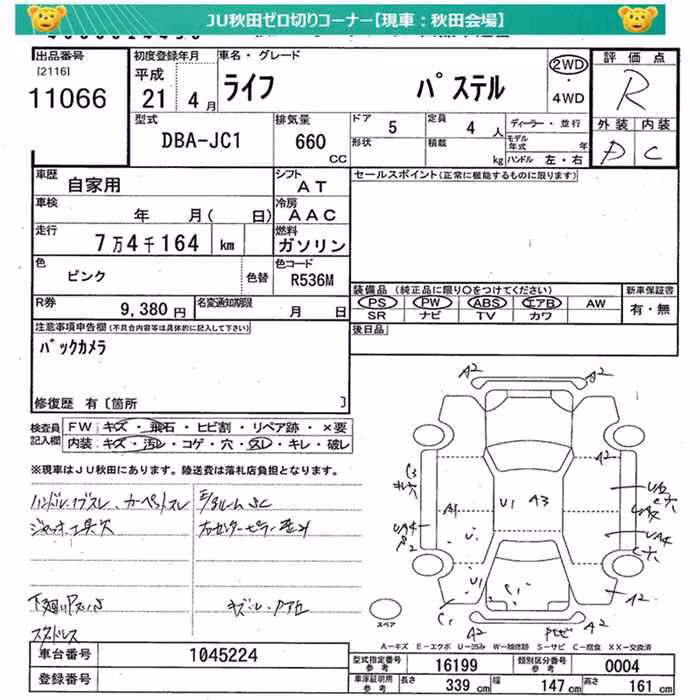 JU秋田ゼロ切りコーナー【現車：秋田会場】
出品番号
[2116]
11066
初度登録年月
平成
21 4月
車名・グレード
ライフ パステル
2WD
・
4WD
評価点
R
外装 内装
D C
型式
DBA-JC1
排気量
660
CC
ドア 5
定員 4人
形状
積載 kg
ディーラー・並行
モデル年式 年
ハンドル 左・右
車歴
自家用
シフト
AT
セールスポイント(正常に機能するものに限ります)
車検
年 月( 日)
冷房
AAC
走行
7万4千164 km
燃料
ガソリン
色
ピンク
色替
色コード
R536M
装備品 (純正品に限り○をつけてください)
PS PW ABS エアB AW
SR ナビ TV カワ
新車保証書
有・無
R券
9,380円
名変通知期限
月 日
後日品
注意事項申告欄(不具合内容等は具体的に記入して下さい)
バックカメラ
修復歴 有〔箇所 〕
検査員記入欄
FW キズ・飛石・ヒビ割・リペア跡・×要
内装 キズ・汚レ・コゲ・穴・スレ・キレ・破レ
※現車はJU秋田にあります。陸送費は落札店負担となります。
ハンドル、ノブスレ、カーペットスレ
ジャッキ、工具欠
スタッドレス
A2 A2
A2
A1
U1 A3
UA4
U1
C1
A2
スペア
A－キズ E－エクボ U－凹み W－補修跡 S－サビ C－腐食 XX－交換済
車台番号
1045224
登録番号
型式指定番号 参考
16199
類別区分番号 参考
0004
車庫証明用 参考
長さ 339 cm
幅 147 cm
高さ 161 cm